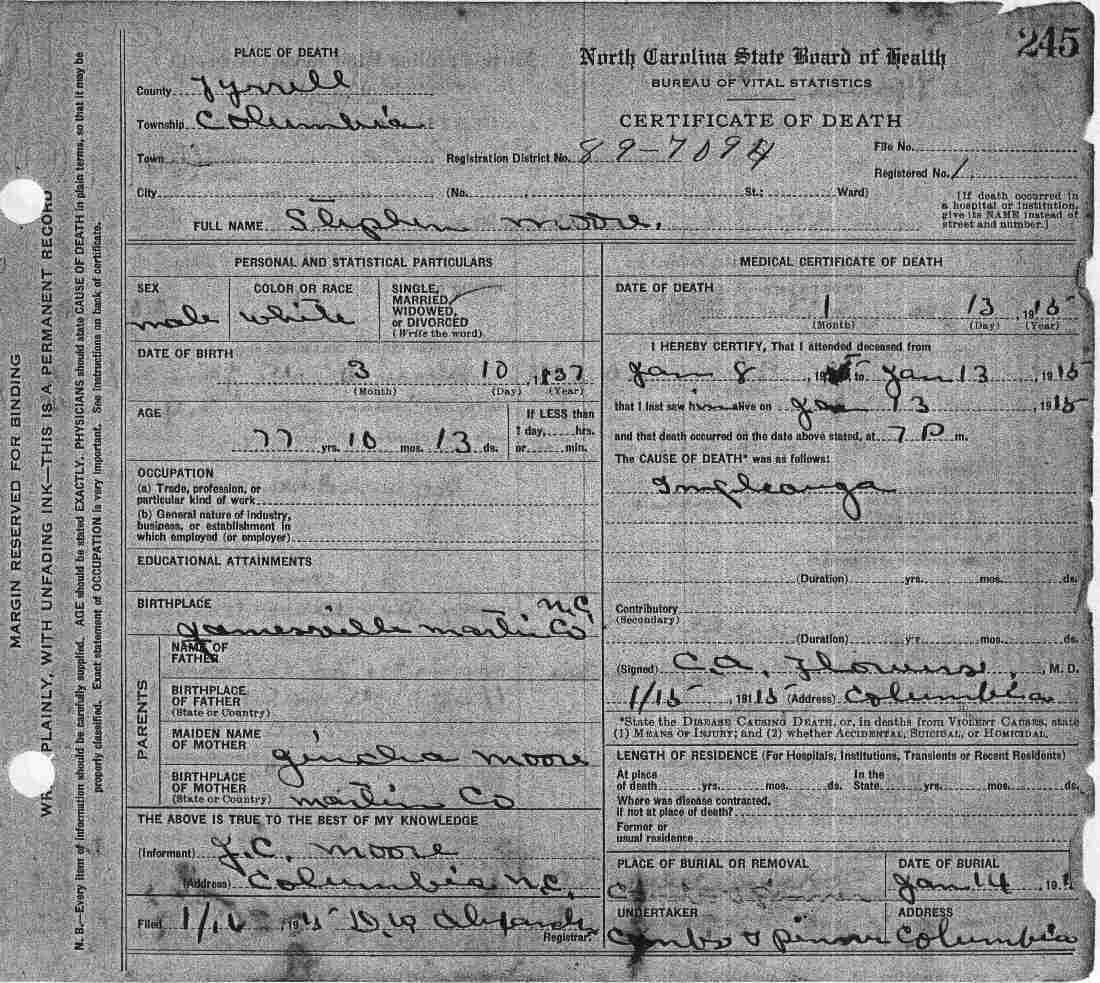 245
PLACE OF DEATH
North Carolina State Board of Health
BUREAU OF VITAL STATISTICS
CERTIFICATE OF DEATH
County Tyrrell
Township Columbia
Town
Registration District No. 89-7094
File No.
Registered No. 1
City (No. St.; Ward)
[If death occurred in
a hospital or institution,
give its NAME instead of
street and number.]
FULL NAME Stephen Moore.
PERSONAL AND STATISTICAL PARTICULARS
SEX
male
COLOR OR RACE
white
SINGLE,
MARRIED,
WIDOWED,
or DIVORCED
(Write the word)
DATE OF BIRTH
3 10, 1837
(Month) (Day) (Year)
AGE
77 yrs. 10 mos. 13 ds.
If LESS than
1 day, hrs.
or min.
OCCUPATION
(a) Trade, profession, or
particular kind of work
(b) General nature of industry,
business, or establishment in
which employed (or employer)
EDUCATIONAL ATTAINMENTS
BIRTHPLACE
Jamesville Martin Co N.C.
PARENTS
NAME OF
FATHER
BIRTHPLACE
OF FATHER
(State or Country)
MAIDEN NAME
OF MOTHER
Moore
BIRTHPLACE
OF MOTHER
(State or Country) Martin Co
THE ABOVE IS TRUE TO THE BEST OF MY KNOWLEDGE
(Informant) J.C. Moore
(Address) Columbia N.C.
Filed 1/16, 1915
Registrar.
MEDICAL CERTIFICATE OF DEATH
DATE OF DEATH
1 13, 1915
(Month) (Day) (Year)
I HEREBY CERTIFY, That I attended deceased from
Jan 8, 1915, to Jan 13, 1915
that I last saw him alive on Jan 13, 1915
and that death occurred on the date above stated, at 7 P m.
The CAUSE OF DEATH* was as follows:
(Duration) yrs. mos. ds.
Contributory
(Secondary)
(Duration) yrs. mos. ds.
(Signed) C.A. Flowers, M. D.
1/15 1915 (Address) Columbia
*State the DISEASE CAUSING DEATH, or, in deaths from VIOLENT CAUSES, state
(1) MEANS OF INJURY; and (2) whether ACCIDENTAL, SUICIDAL, or HOMICIDAL.
LENGTH OF RESIDENCE (For Hospitals, Institutions, Transients or Recent Residents)
At place
of death yrs. mos. ds.
In the
State yrs. mos. ds.
Where was disease contracted,
if not at place of death?
Former or
usual residence
PLACE OF BURIAL OR REMOVAL
DATE OF BURIAL
Jan 14, 191
UNDERTAKER
ADDRESS
Columbia
MARGIN RESERVED FOR BINDING
PLAINLY, WITH UNFADING INK—THIS IS A PERMANENT RECORD
N. B.—Every item of information should be carefully supplied. AGE should be stated EXACTLY. PHYSICIANS should state CAUSE OF DEATH in plain terms, so that it may be
properly classified. Exact statement of OCCUPATION is very important. See instructions on back of certificate.